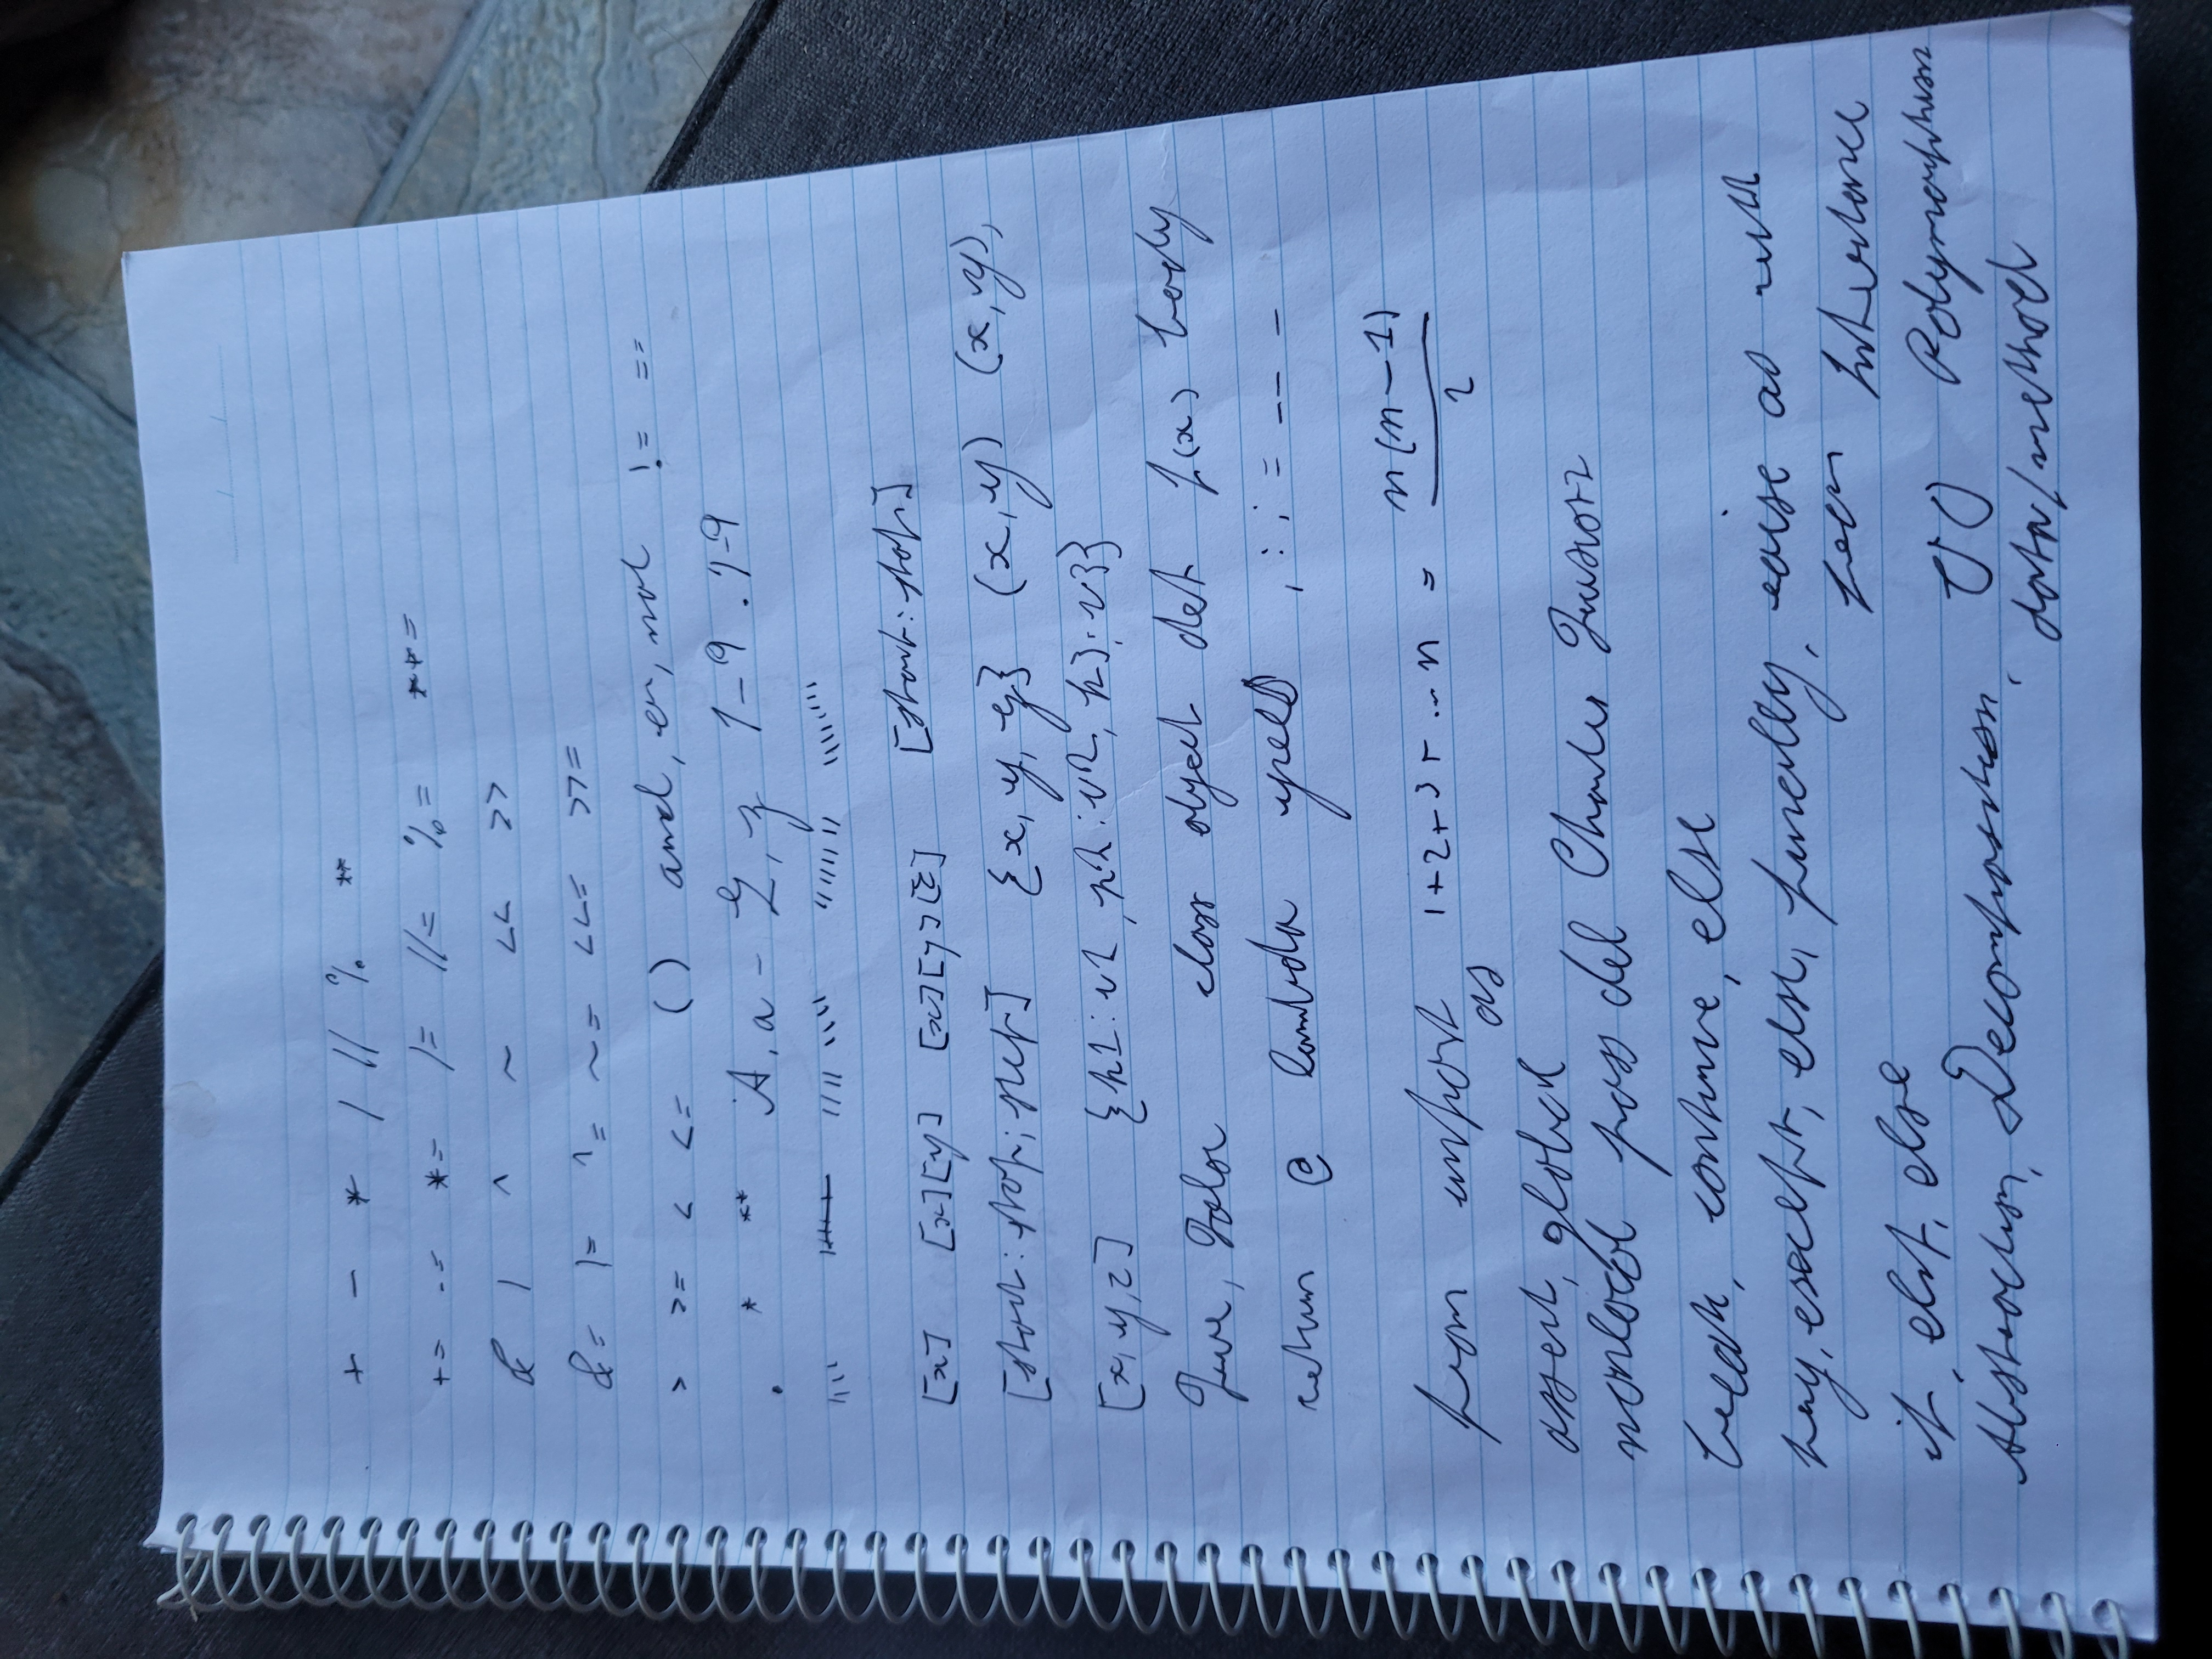 + - * / // % **
+= -= *= /= //= %= **=
& | ^ ~ << >>
&= |= ^= ~= <<= >>=
> >= < <= ( ) and, or, not != ==
. * ** A, a - Z, z 1-9 .1-9
[x] [x][y] [x][y][z] [start:stop]
[start:stop;step] {x, y, z} (x, y) (x, y),
[x, y, z] {k1:v1, k2:v2, k3:v3}
True, False class object def f(x) body
return @ lambda yield , : ; = -- -
from import as 1+2+3+ ... n = n(n-1)/2
assert, global
nonlocal pass del Charles
break, continue, else
try, except, else, finally, raise as well
from Inheritance
if, elif, else
OO Polymorphism
Abstraction, Decomposition,
data/method